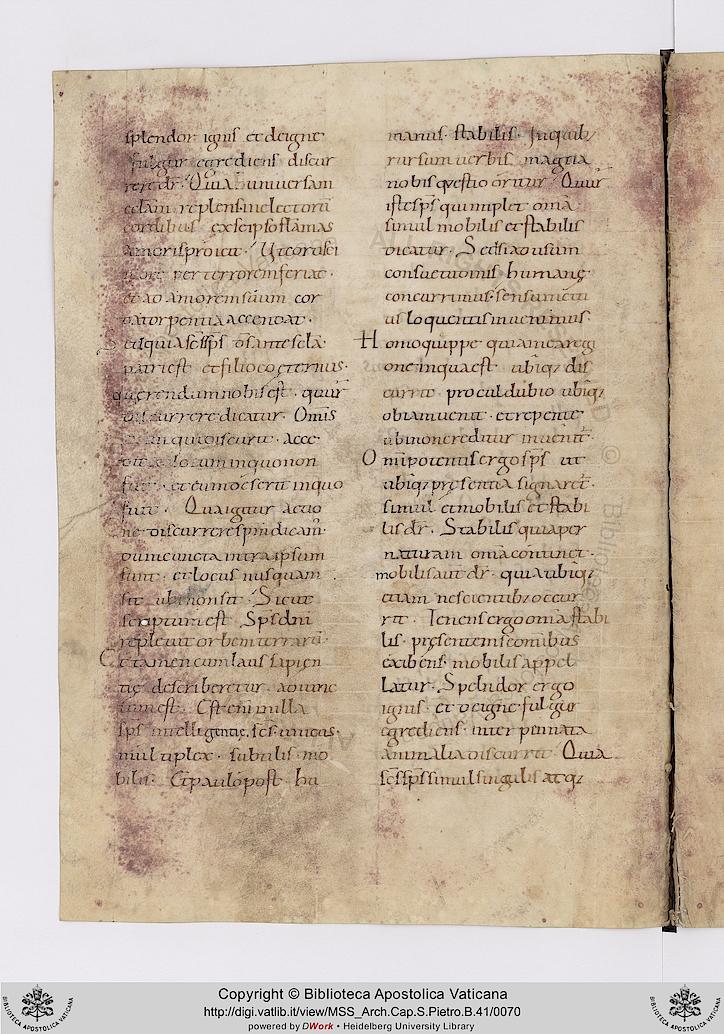 splendor ignis et deigne
fulgur egrediens discur
rere dr̄. Quia universam
eclam replens inelectorū
cordibus ex seipso flāmas
amoris proicit. Ut
more per terrorem feriat.
et ad amorem suum cor
da torpentia accendat.
Sed quia sc̄s sp̄s
patri est et filio coęternus.
quęrendum nobis est. quur̄
discurrere dicatur. Om̄is
enim qui discurrit. acce
dit ad locum in quo non
fuit. et eum deserit in quo
fuit. Qua igitur
ne discurrere sp̄m dicam̄.
dum cuncta intra ipsum
sunt. et locus nusquam
sit ubi non sit. Sicut
scriptum est Sp̄s dn̄i
replevit orbem terrarū.
Et tamen cum laus sapien
tię describeretur. adiunc
tum est. Est enī in illa
sp̄s intellegentię. sc̄s. unicus.
multiplex. subtilis. mo
bilis. Et paulo post. hu
manus. stabilis. In quib;
rursum verbis magna
nobis qvestio oritur. Quur̄
iste sp̄s qui implet om̄a.
simul mobilis et stabilis
dicatur. Sed si ad usum
consuetudinis humanę
concurrimus. sensum citi
us loquentis invenimus.
Homo quippe qui
one inqua est ubiq; dis
currit. procul dubio ubiq;
obviam venit. et repente
ubi non creditur invenit̄.
Omnipotentis ergo sp̄s ut
ubiq; pręsentia signaret̄.
simul et mobilis et stabi
lis dr̄. Stabilis quia per
naturam om̄ia continet.
mobilis aut̄ dr̄. quia ubiq;
etiam nescientib; occur
rit. Tenens ergo om̄ia stabi
lis. pręsentem se om̄ibus
exibens. mobilis appel
latur. Spelndor ergo
ignis. et deigne fulgur
egrediens. inter pennata
animalia discurrit. Quia
sc̄s sp̄s simul singulis atq;
Copyright © Biblioteca Apostolica Vaticana
http://digi.vatlib.it/view/MSS_Arch.Cap.S.Pietro.B.41/0070
powered by DWork • Heidelberg University Library